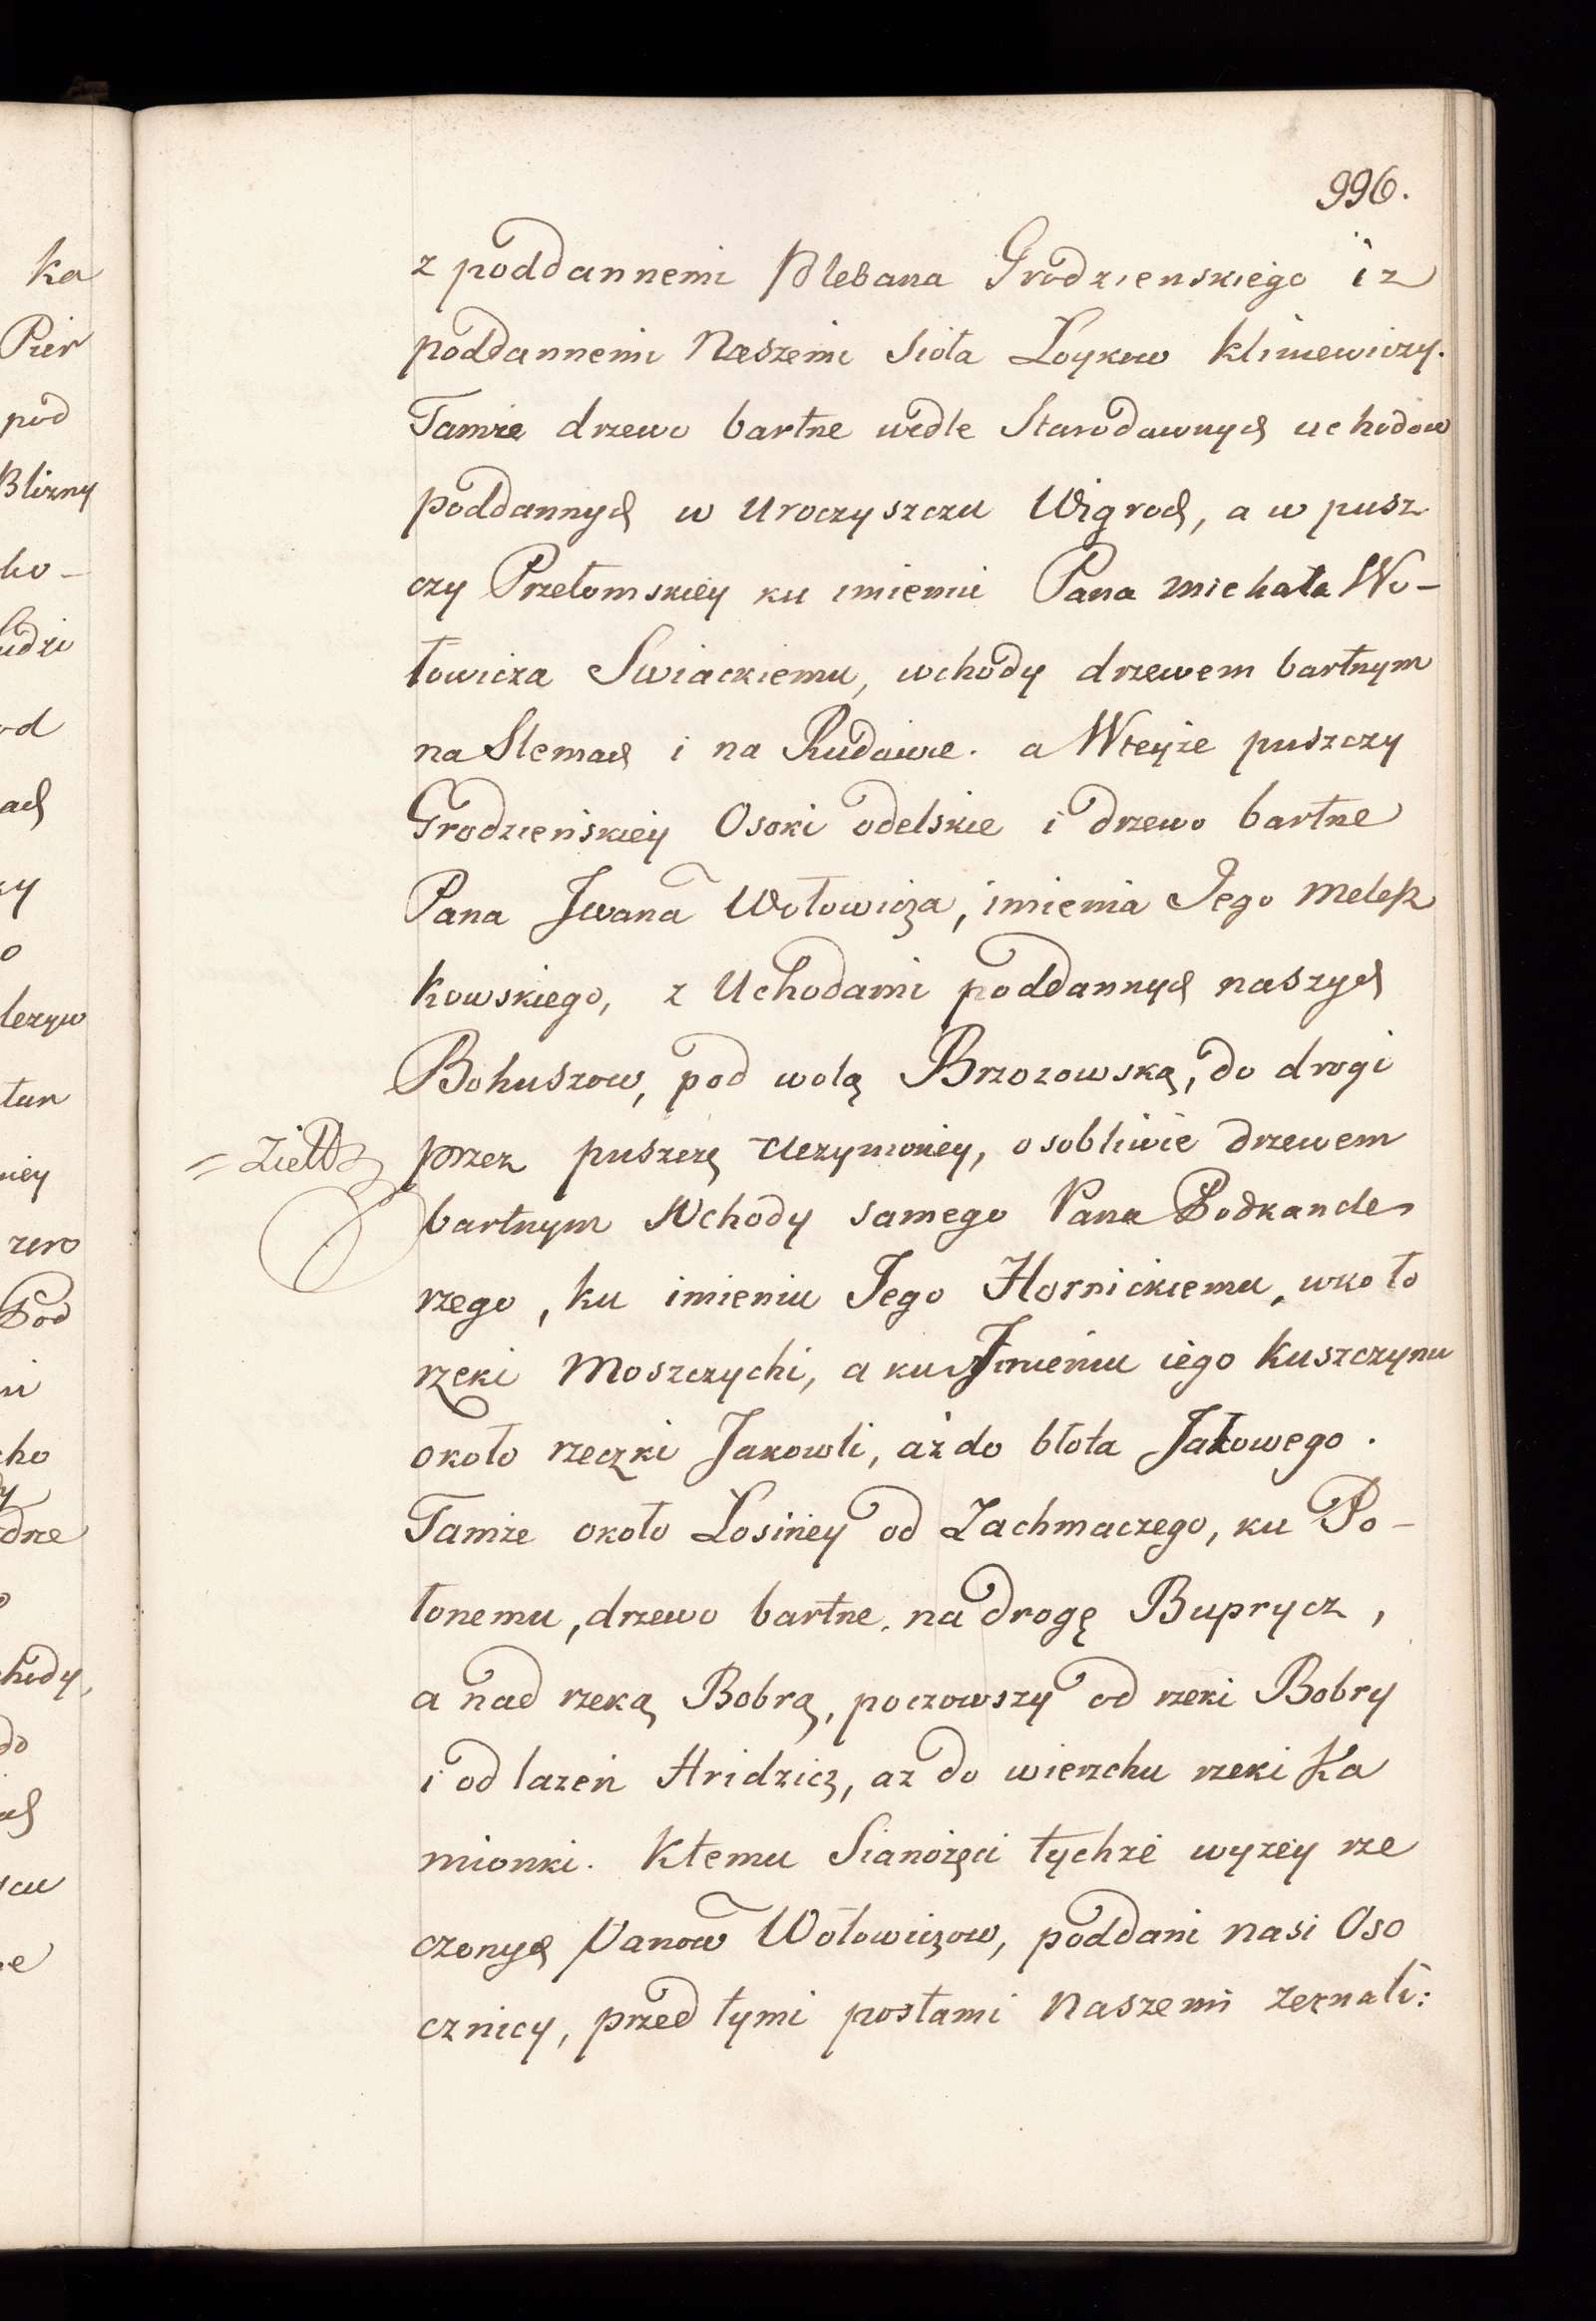 996.
ka
z poddannemi Plebana Grodzienskiego i z
Pier
poddannemi Naszemi Sioła Łoykow Klimewiczy.
pod
Tamże drzewo bartne wedle Starodawnych uchodow
Blizny
poddannych w Uroczyszczu Wigrod, a w pusz
ho-
czy Przełomskiey ku imieniu Pana Michała Wo-
łowicza Swiackiemu, wchody drzewem bartnym
od
na Slemach i na Rudawce. a Wteyże puszczy
ach
Grodzieńskiey Osoki odelskie i drzewo bartne
Pana Iwana Wołowicza, imienia Jego Melesz
o
kowskiego, z Uchodami poddannych naszych
Bohuszow, pod wolą Brzozowską, do drogi
= Ziell
przez puszczę idezymoney, osobliwie drzewem
ney
bartnym Wchody samego Pana Podkancle
zero
rzego, ku imieniu Jego Hornickiemu, wkoło
Pod
rzeki Moszczychi, a ku Imieniu iego Kuszczynu
około rzeczki Jakowli, aż do błota Jałowego.
cho
Tamże około Łosiney od Zachmaczego, ku Po-
łonemu, drzewo bartne, na drogę Buprycz,
a nad rzeką Bobrą, poczowszy od rzeki Bobry
do
i od lazeń Hridzicz, aż do wierzchu rzeki Ka
mionki. Ktemu Sianożęci tychże wyżey rze
czonych Panow Wołowiczow, poddani nasi Oso
cznicy, przed tymi posłami Naszemi zeznali: